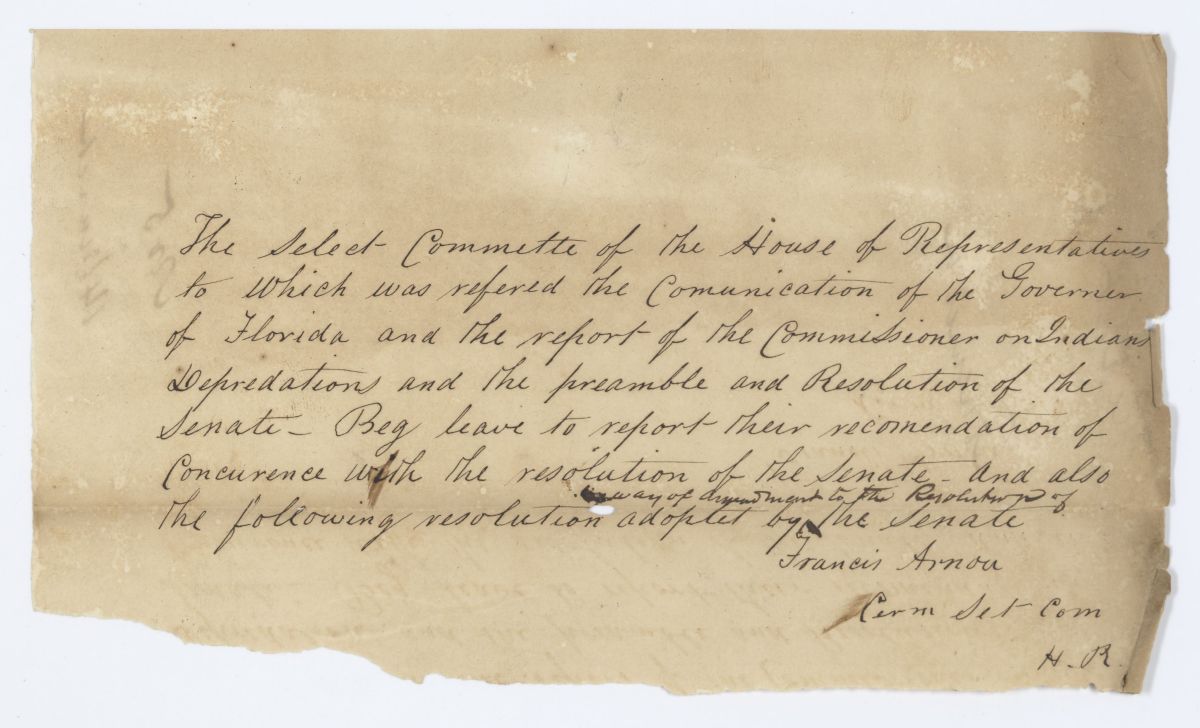 The Select Committe of the House of Representatives
to which was refered the Comunication of the Governer
of Florida and the report of the Commissioner on Indians
Depredations and the preamble and Resolution of the
Senate - Beg leave to report their recomendation of
Concurence with the resolution of the Senate - and also
way of amendment to the Resolution of
the following resolution adoptet by the Senate
Francis Arnou
Cerm Set Com
H. R.